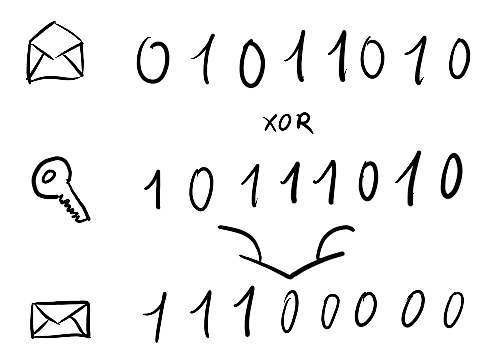 01011010
XOR
10111010
11100000